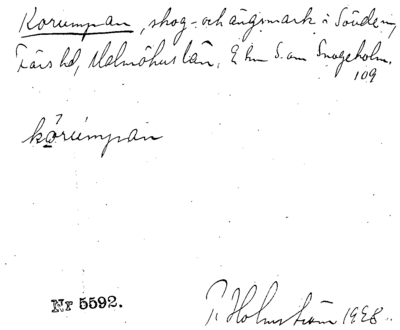 Korumpan, skog- och ängsmark i Sövde sn,
Färs hd, Malmöhus län, 2 km S. om Snogeholm.
109
kórùmpan
Nr 5592.
P. Holmström 1928.